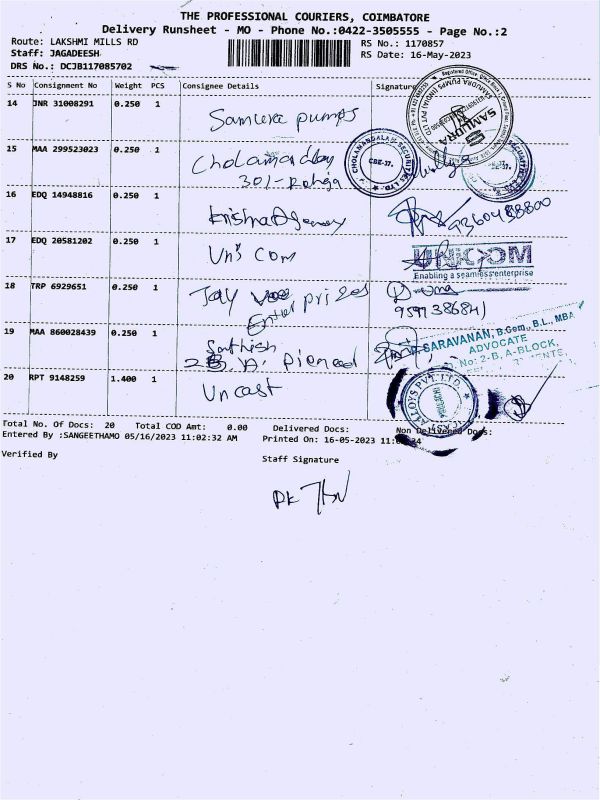 THE PROFESSIONAL COURIERS, COIMBATORE
Delivery Runsheet - MO - Phone No.:0422-3505555 - Page No.:2
Route: LAKSHMI MILLS RD
RS No.: 1170857
Staff: JAGADEESH
RS Date: 16-May-2023
DRS No.: DCJB117085702
S No Consignment No Weight PCS Consignee Details Signature
14 JNR 31008291 0.250 1 Samudra pumps
SAMUDRA
15 MAA 299523023 0.250 1 Cholamandalay
301-Raheja
CHOLAMANDALAM SECURITIES LTD.
CBE-37.
16 EDQ 14948816 0.250 1 Krishna Agency 9360488800
17 EDQ 20581202 0.250 1 Uni Com
UNICOM
Enabling a seamless enterprise
18 TRP 6929651 0.250 1 Jay
Enter prizes
Uma
19 MAA 860028439 0.250 1 Sathish
SARAVANAN, B.Com., B.L., MBA
ADVOCATE
No: 2-B, A-BLOCK,
20 RPT 9148259 1.400 1 Un cast
ALLOYS PVT. LTD.
Total No. Of Docs: 20 Total COD Amt: 0.00 Delivered Docs: Non Delivered Docs:
Entered By :SANGEETHAMO 05/16/2023 11:02:32 AM Printed On: 16-05-2023
Verified By
Staff Signature